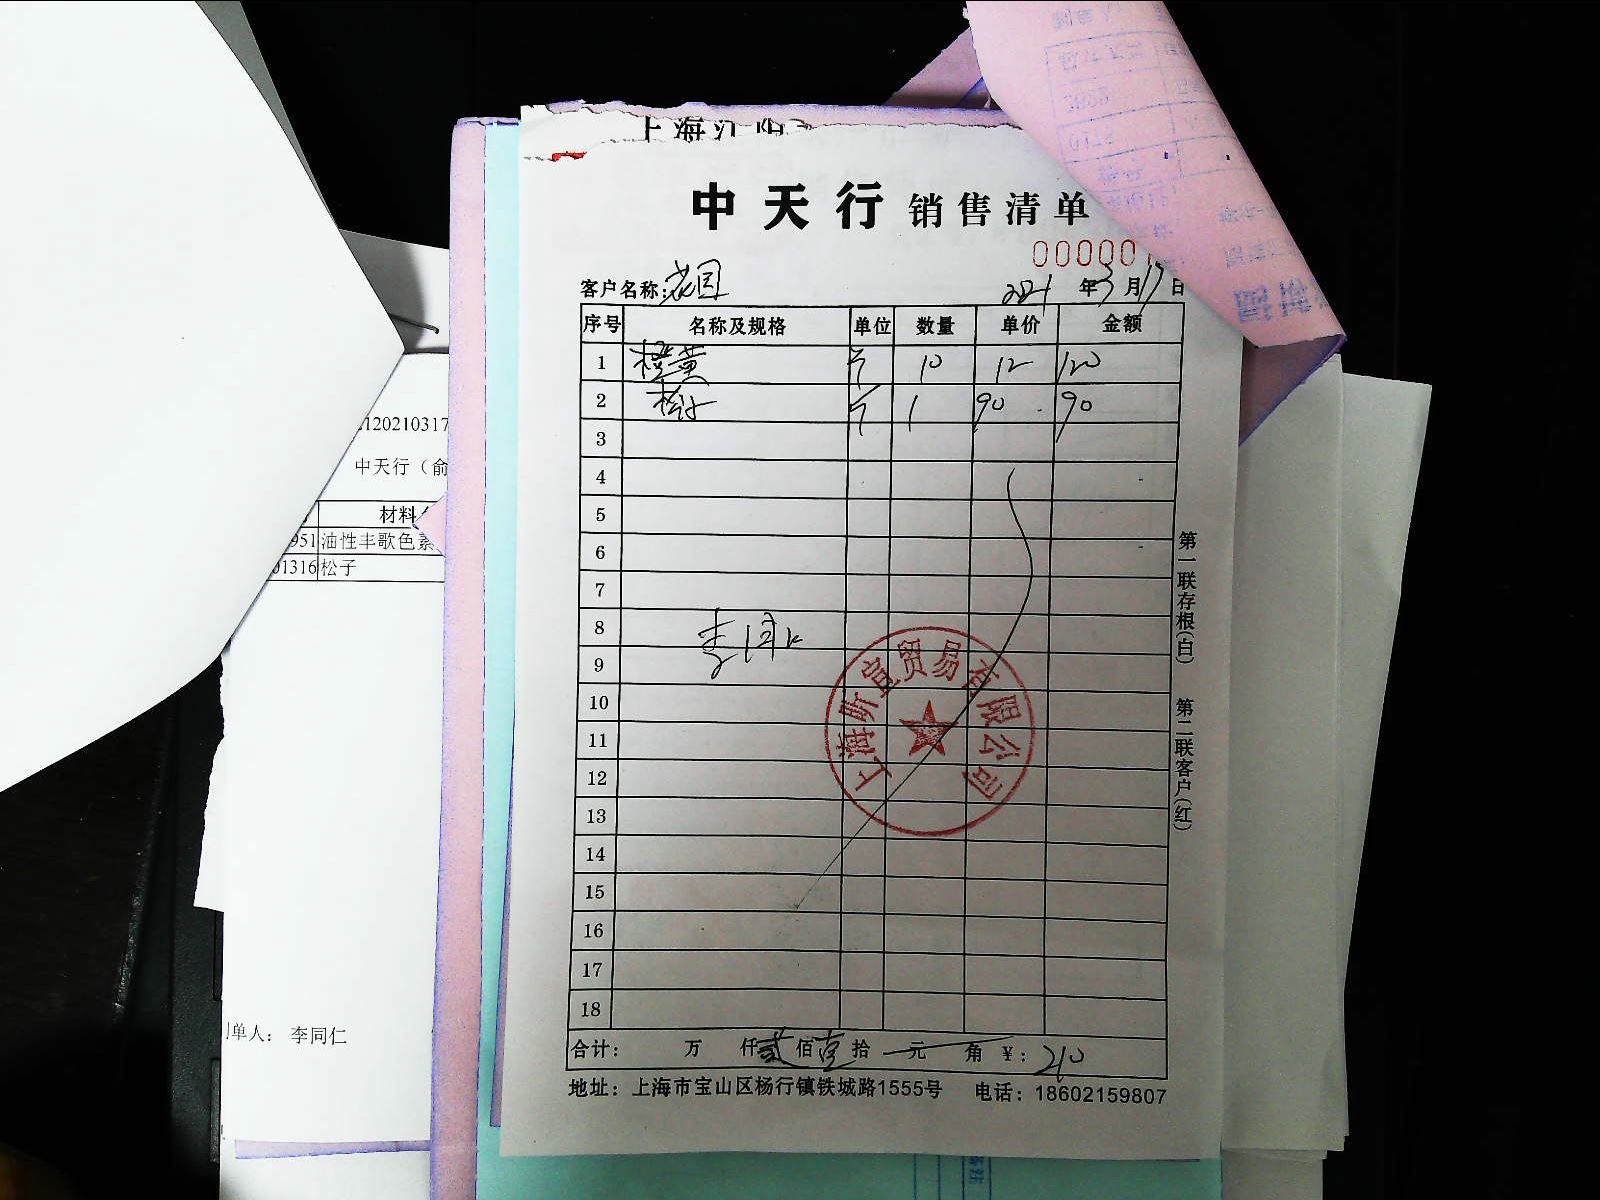 上海江
中天行 销售清单
00000
客户名称：老同 2021年3月17日
序号 名称及规格 单位 数量 单价 金额
1 橙黄 斤 10 12 120
2 松子 斤 1 90 90
3
4
5
6
7
8 李同仁
9
10
11
12
13
14
15
16
17
18
上海昕宜贸易有限公司
合计： 万 仟贰佰壹拾 元 角 ￥：210
地址：上海市宝山区杨行镇铁城路1555号 电话：18602159807
第一联存根(白) 第二联客户(红)
120210317
中天行（俞
材料
951 油性丰歌色素
01316 松子
单人： 李同仁